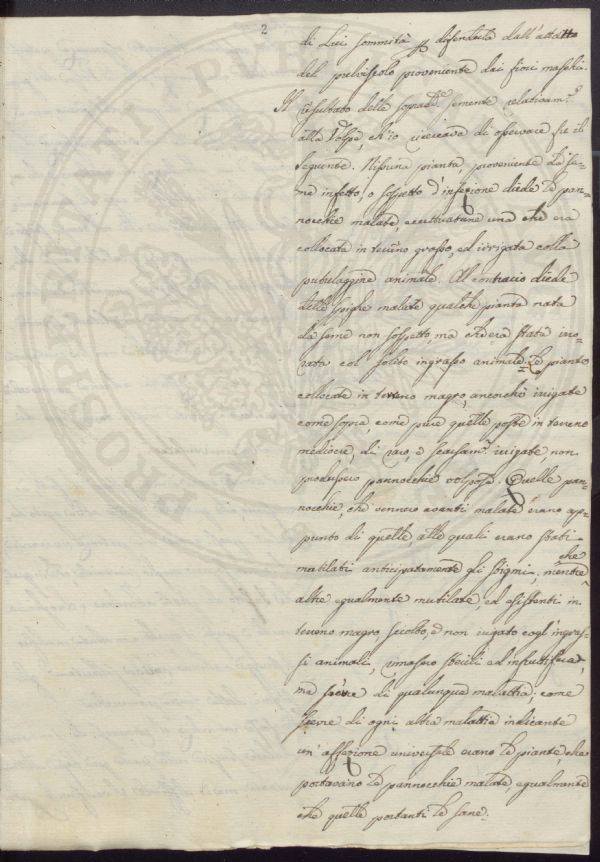 2
di Lui sommità, difenduta dall'attatto
del pulviscolo proveniente dai fiori maschi.
Il resultato delle sopradte. semente relativamte.
alla Volpe, ch'io cercava di osservare fu il
seguente. Nissuna pianta, proveniente da se-
me infetto, o sospetto d'infezione diede le pan-
nocchie malate, eccettuatane una che era
collocata in terreno grasso, ed irrigata colla
putrelaggine animale. Al contrario diede
delle spighe malate qualche pianta nata
da seme non sospetto, ma ch'era stata irro-
rata col solito ingrasso animale. Le piante
collocate in terreno magro, ancorchè irrigate
come sopra, come pure quelle poste in terreno
mediocre, di raro, e scarsamte. irrigate non
produssero pannocchie volpate. Quelle pan-
nocchie, che vennero avanti malate erano ap-
punto di quelle alle quali erano stati
mutilati anticipatamente gli stigmi, mentre che
altre egualmente mutilate, ed esistenti in
terreno magro secolbo, e non rugato cogl'ingras-
si animali, rimasero sterili ed infruttifere,
ma scevre di qualunque malattia; come
scevre di ogni altra malattia indicante
un'affezione universale erano le piante, che
portavano le pannocchie malate, egualmente
che quelle portanti le sane.